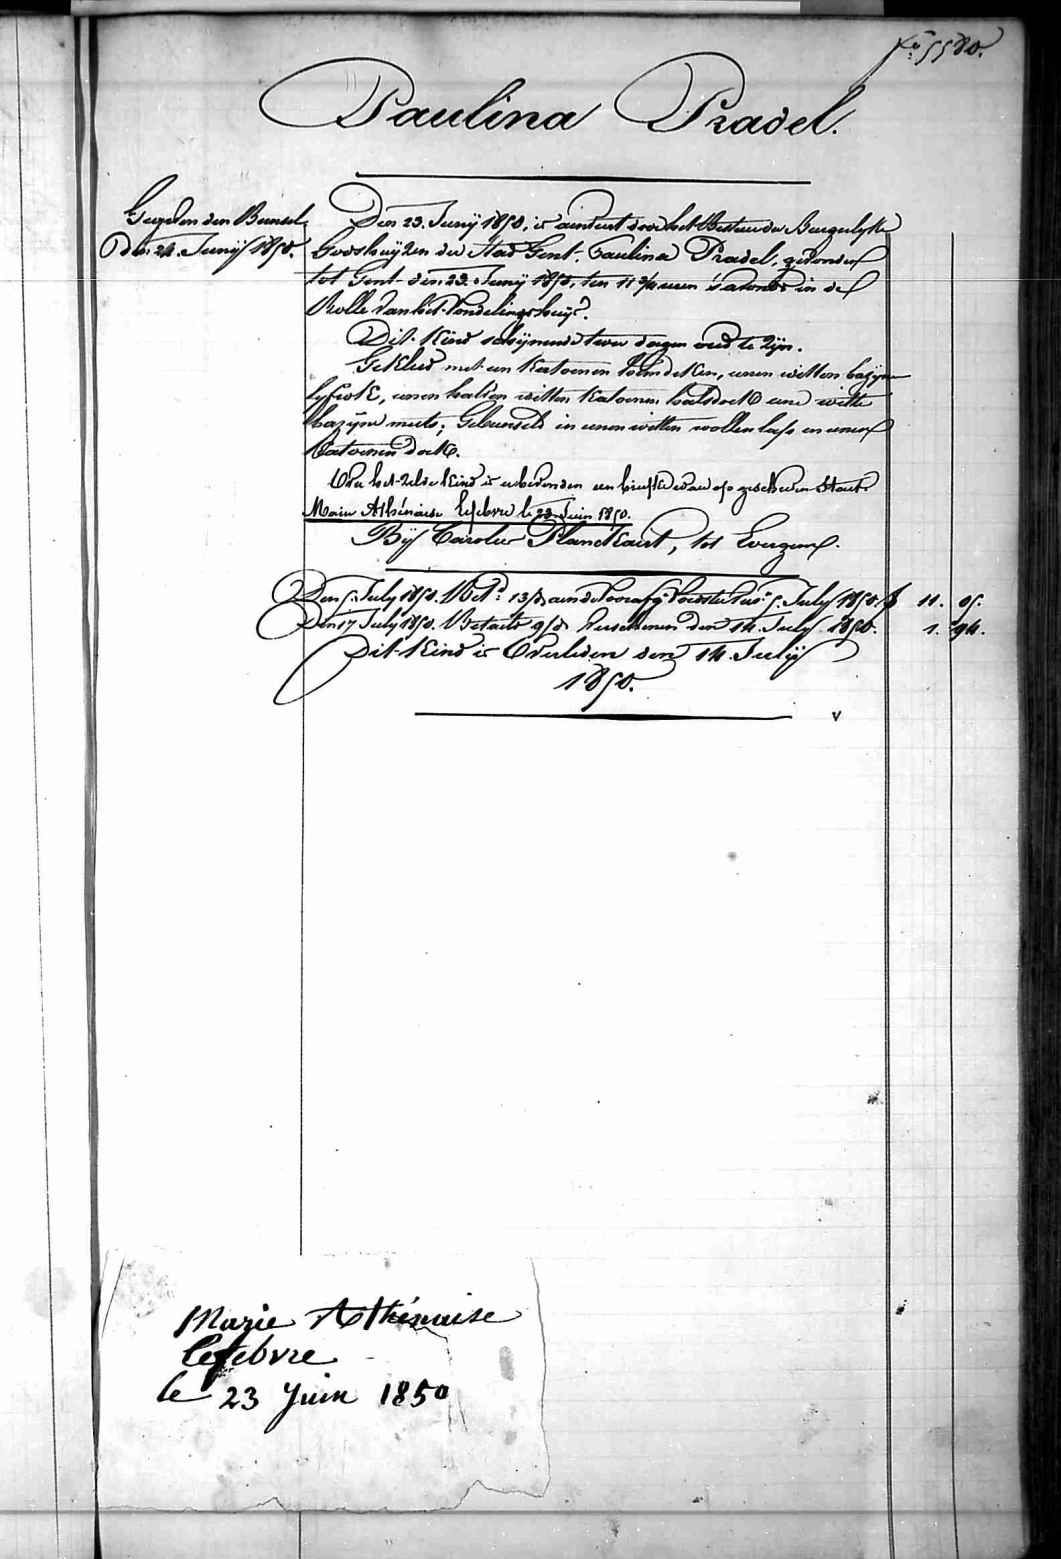 fo. 5580.
Paulina Pradel.
Gegeven den Bunsel
Den 24. Junij 1850.
Den 23. Junij 1850, is aanveert door het Bestuur der Burgerlyke
Godshuijzen der Stad Gent, Paulina Pradel, gevonden
tot Gent den 23. Junij 1850, ten 11 3/4 uren 's avonds in de
Rolle van het Vondelingshuijs.
Dit Kind schijnende twee dagen oud te zijn.
Gekleed met een Katoenen hemdeken, eenen witten bazijne
lyfrok, eenen halven witten Katoenen halsdoek eene witte
bazijne muts; Gebunseld in eenen witten wollen laps en eenen
Katoenen doek.
Over het zelve Kind is bevonden een briefke waar op geschreven staat
Marie Athénaise lefebvre le 23 Juin 1850.
Bij Carolus Planckaert, tot Evergem.
Den 5. July 1850. 5. July 1850. 11. 05.
Den 17 July 1850. Betaelt verschenen den 14. July 1850. 1. 94.
Dit Kind is Overleden den 14. Julij
1850.
v
Marie Athénaise
lefebvre
le 23 Juin 1850